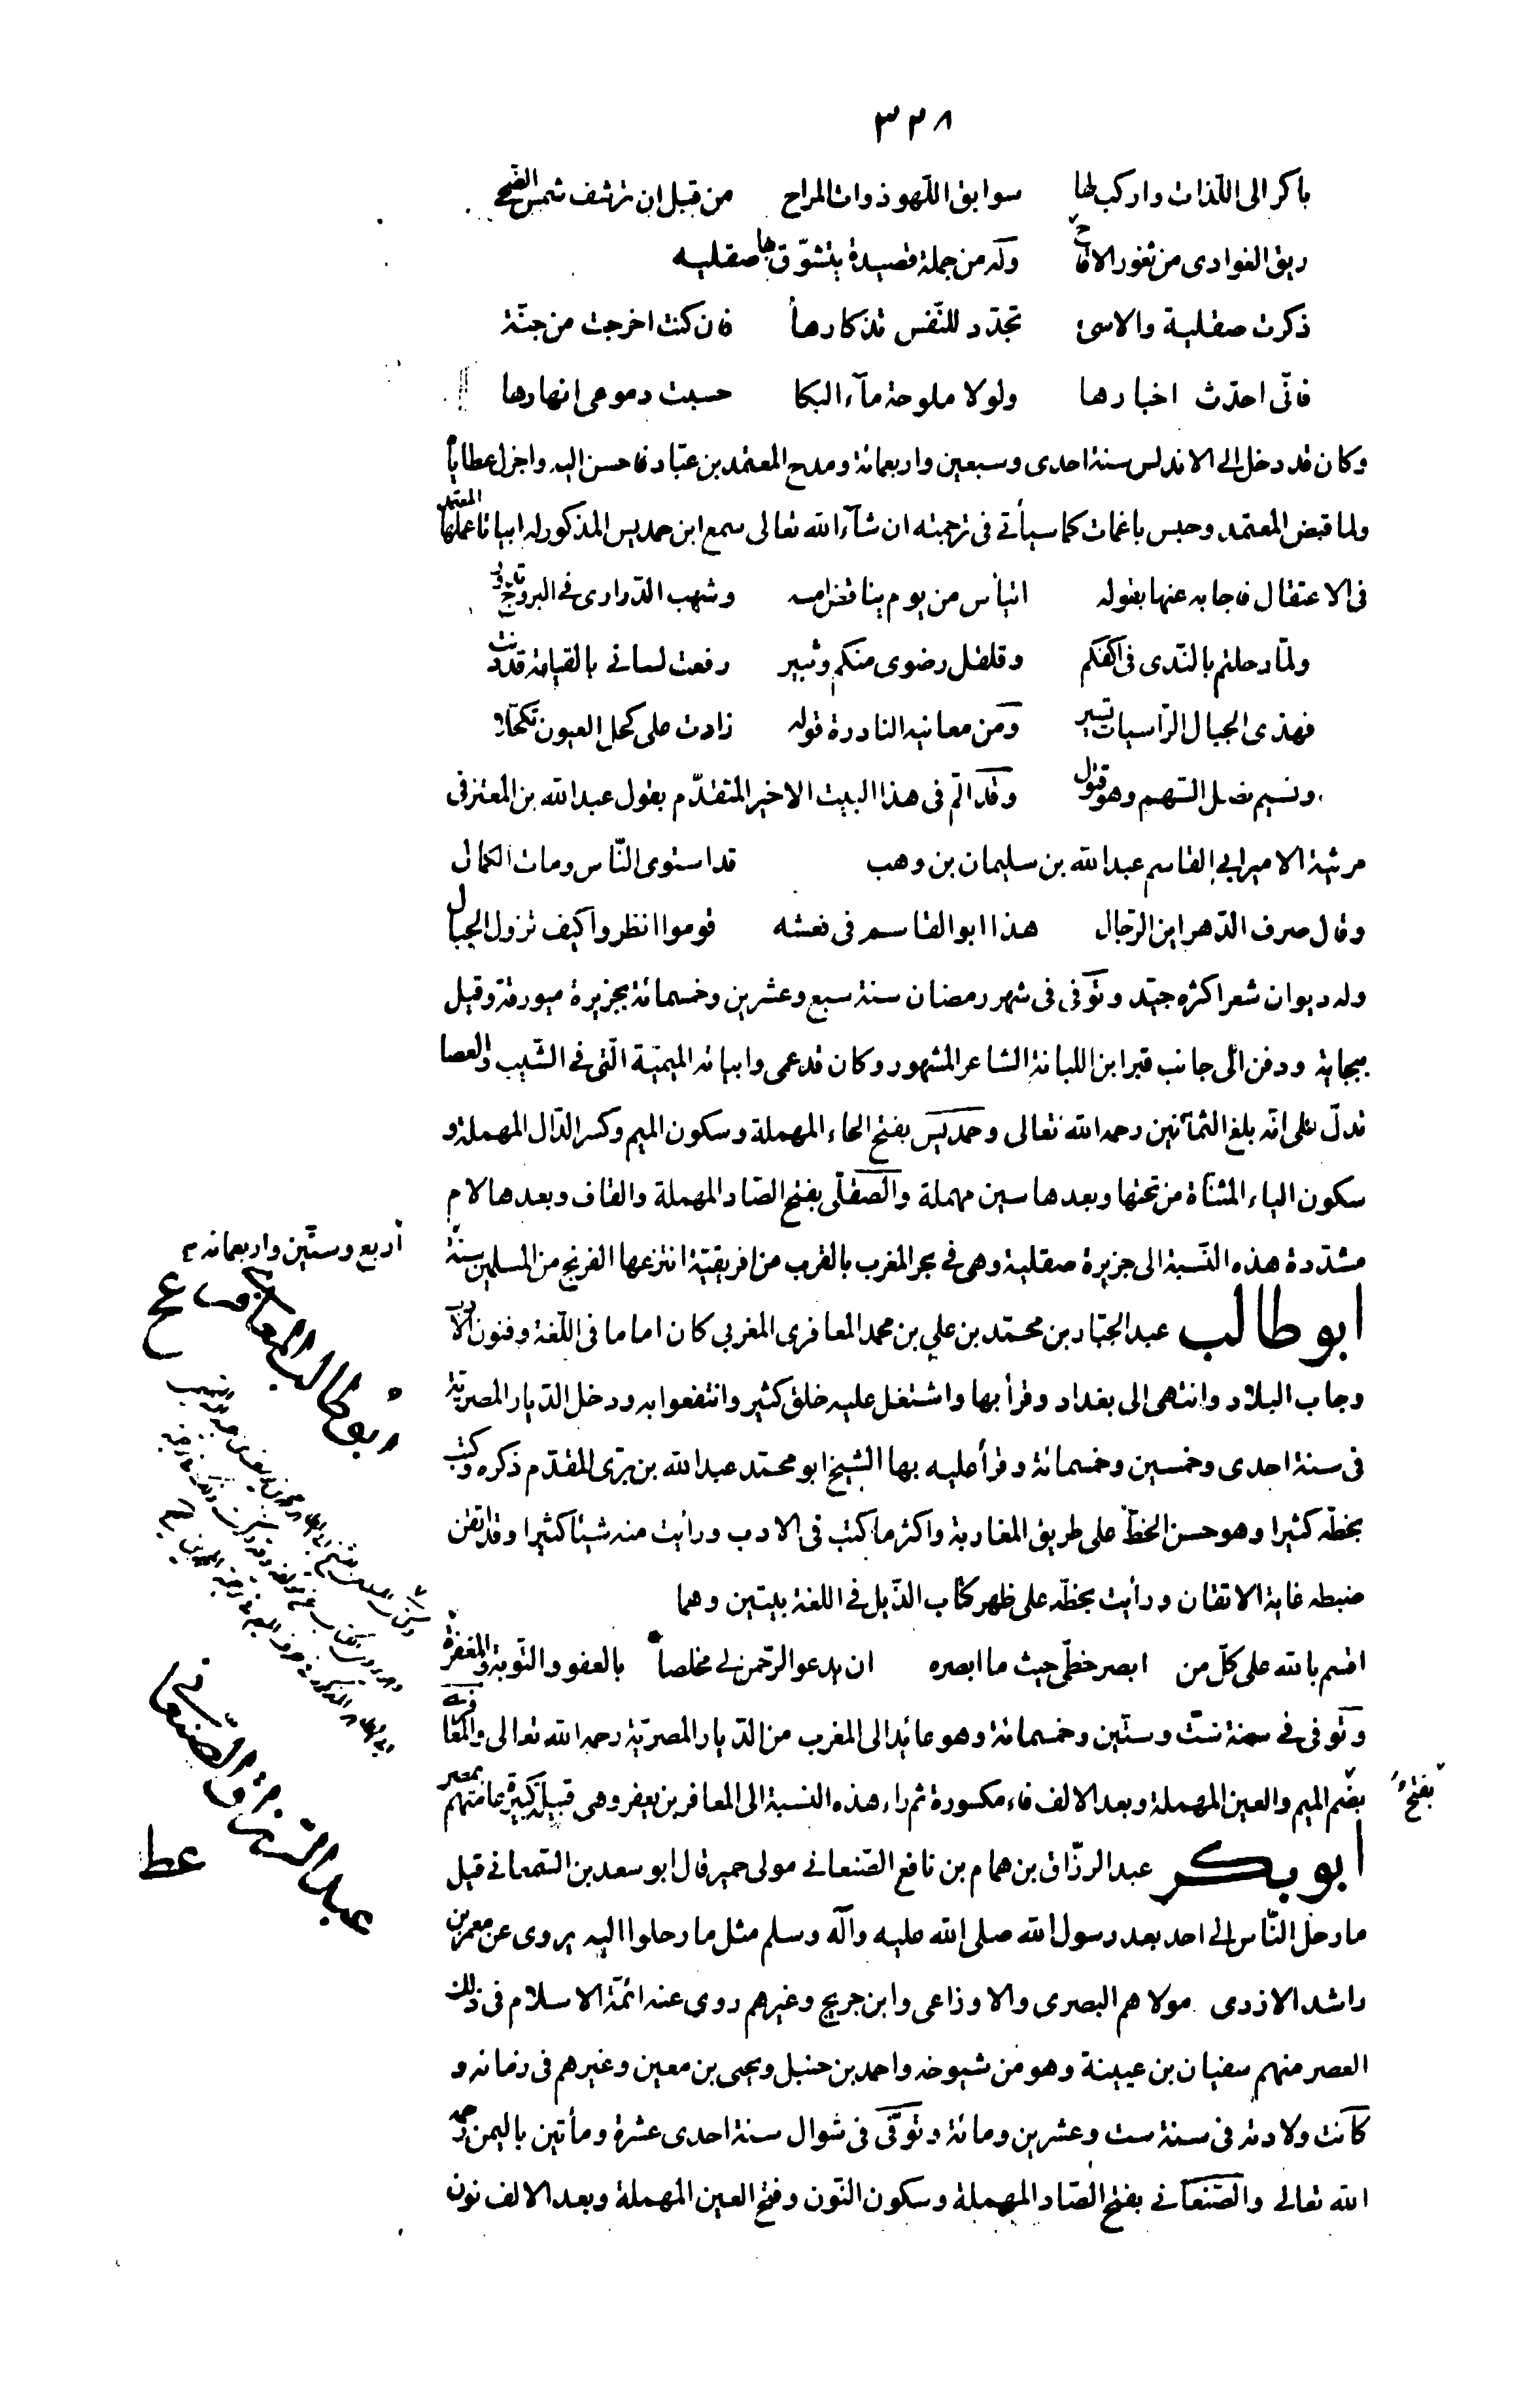 ٣٣٨
باكر الى اللّذات واركب لها سوابق اللّهو ذوات المراح من قبل ان ترشف شمس الضّحى
ريق الغوادى من ثغور الاقاح وله من جملة قصيدة يتشوّق بها صقليه
ذكرت صقلية والاسى تجدّد للنّفس تذكارها فان كنت اخرجت من جنّة
فانّى احدّث اخبارها ولولا ملوحة مآء البكا حسبت دموعى انهارها
وكان قد دخل الى الاندلس سنة احدى وسبعين واربعمائة ومدح المعتمد بن عبّاد فاحسن اليه واجزل عطاياه
ولما قبض المعتمد وحبس باغمات كما سيأتى فى ترجمته ان شآء الله تعالى سمع ابن حمديس المذكور له ابياتا عملها المعتمد
فى الاعتقال فاجابه عنها بقوله اتيأس من يوم يناقض امسه وشهب الدّرارى فى البروج تدور
ولمّا رحلتم بالنّدى فى اكفكم وقلقل رضوى منكم وثبير رفعت لسانى بالقيامة قد دنت
فهذى الجبال الرّاسيات تسير ومن معانيه النادرة قوله زادت على كحل العيون تكحّلا
ونسيم نصل السّهم وهو قتول وقد الّم فى هذا البيت الاخير المتقدّم بقول عبد الله بن المعتز فى
مرثية الامير ابى القاسم عبد الله بن سليمان بن وهب قد استوى النّاس ومات الكمال
وقال صرف الدّهر اين الرّجال هذا ابو القاسم فى نعشه قوموا انظروا كيف تزول الجبال
وله ديوان شعر اكثره جيّد وتوفى فى شهر رمضان سنة سبع وعشرين وخمسمائة بجزيرة ميورقة وقيل
ببجاية ودفن الى جانب قبر ابن اللبانة الشاعر المشهور وكان قد عمى وابياته الميميّة الّتى فى الشّيب والعصا
تدلّ على انّه بلغ الثمآنين رحمه الله تعالى وحمديس بفتح الحاء المهملة وسكون الميم وكسر الدّال المهملة و
سكون الياء المثنّاة من تحتها وبعدها سين مهملة والصّقلّى بفتح الصّاد المهملة والقاف وبعدها لام
مشدّدة هذه النّسبة الى جزيرة صقلية وهى فى بحر المغرب بالقرب من افريقيّة انتزعها الفرنج من المسلمين سنة
أربع وستّين واربعمائه
ابو طالب المعافرى
ابو طالب عبد الجبّار بن محمّد بن على بن محمد المعافرى المغربى كان اماما فى اللّغة وفنون الأدب
وجاب البلاد وانتهى الى بغداد وقرأ بها واشتغل عليه خلق كثير وانتفعوا به ودخل الدّيار المصريّة
فى سنة احدى وخمسين وخمسمائة وقرأ عليه بها الشيخ ابو محمّد عبد الله بن برّى المقدّم ذكره وكتب
بخطّه كثيرا وهو حسن الخطّ على طريق المغاربة واكثر ما كتب فى الادب ورأيت منه شيئا كثيرا وقد اتقن
ضبطه غاية الاتقان ورأيت بخطّه على ظهر كتاب الذّيل فى اللغة بيتين وهما
اقسم بالله على كلّ من ابصر خطّى حيث ما ابصره ان يدعو الرّحمن لى مخلصاً بالعفو والتّوبة والمغفرة
وتوفى فى سنة ستّ وستّين وخمسمائة وهو عائد الى المغرب من الدّيار المصريّة رحمه الله تعالى والمعافرى
بفتح
بضّم الميم والعين المهملة وبعد الالف فاء مكسورة ثم راء هذه النسبة الى المعافر بن يعفر وهى قبيلة كبيرة عامّتهم بمصر
عبد الرزّاق الصّنعانى
عط
ابو بكر عبد الرزّاق بن همام بن نافع الصّنعانى مولى حمير قال ابو سعد بن السّمعانى قيل
ما رحل النّاس الى احد بعد رسول الله صلى الله عليه وآله وسلم مثل ما رحلوا اليه يروى عن معمر بن
راشد الازدى مولاهم البصرى والاوزاعى وابن جريج وغيرهم روى عنه ائمّة الاسلام فى ذلك
العصر منهم سفيان بن عيينة وهو من شيوخه واحمد بن حنبل ويحيى بن معين وغيرهم فى زمانه و
كانت ولادته فى سنة ست وعشرين ومائة وتوفّى فى شوال سنة احدى عشرة ومأتين باليمن رحمه
الله تعالى والصّنعآنى بفتح الصّاد المهملة وسكون النّون وفتح العين المهملة وبعد الالف نون